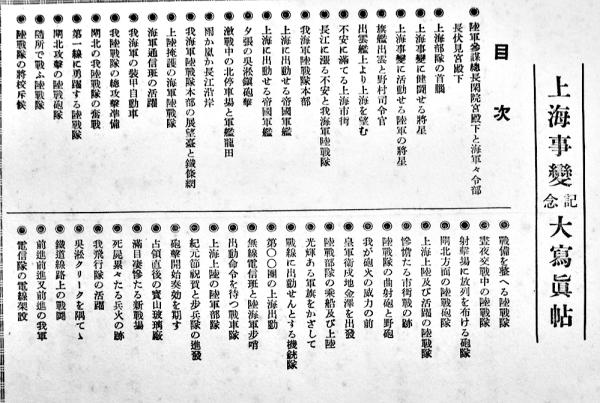 上海事變
記念
大寫眞帖
目次
陸軍參謀總長閑院宮殿下と海軍々令部
長伏見宮殿下
上海部隊の首腦
上海事變に健鬪せる將星
上海事變に活動せる陸軍の將星
旗艦出雲と野村司令官
出雲艦上より上海を望む
不安に滿てる上海市街
長江に漲る不安と我海軍陸戰隊
我海軍陸戰隊本部
上海に出動せる帝國軍艦
上海に出動せる帝國軍艦
夕張の吳淞領砲擊
激戰中の北停車場と軍艦龍田
雨か嵐か長江沿岸
我海軍陸戰隊本部の展望臺と鐵條網
上陸掩護の海軍陸戰隊
海軍通信班の活躍
我海軍の裝甲自動車
我陸戰隊の總攻擊準備
閘北の我陸戰隊の奮戰
第一線に勇躍する陸戰隊
閘北攻擊の陸戰砲隊
隨所で戰ふ陸戰隊
陸戰隊の將校斥候
戰備を整へる陸戰隊
晝夜交戰中の陸戰隊
射擊場に放列を布ける砲隊
閘北方面の陸戰砲隊
上海上陸及び活躍の陸戰隊
慘憺たる市街戰の跡
陸戰隊の曲射砲と野砲
我が砲火の威力の前
皇軍衞戍地金澤を出發
陸戰部隊の乘船及び上陸
光輝ある軍旗をかざして
戰線に出動せんとする機銃隊
第〇〇團の上海出動
無線電信班と陸海軍步哨
出動命令を待つ戰車隊
上海上陸の陸軍部隊
紀元節祝賀と步兵隊の進發
砲擊開始奏効を期す
占領直後の寶山玻璃廠
滿目悽慘たる新戰場
死屍累々たる兵火の跡
我飛行隊の活躍
吳淞クリークを隔てゝ
鐵道線路上の戰鬪
前進前進又前進の我軍
電信隊の電線架設